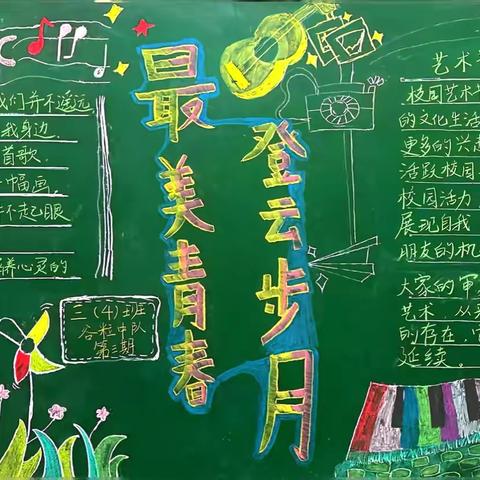 我们并不遥远
我身边.
首歌.
一幅画.
不起眼
心灵的
三(4)班
谷粒中队
第三期
最美青春
登云步月
艺术
校园艺术
的文化生活
更多的兴
活跃校园
校园活力.
展现自我
朋友的机
大家的审
艺术.从
的存在.
延续.